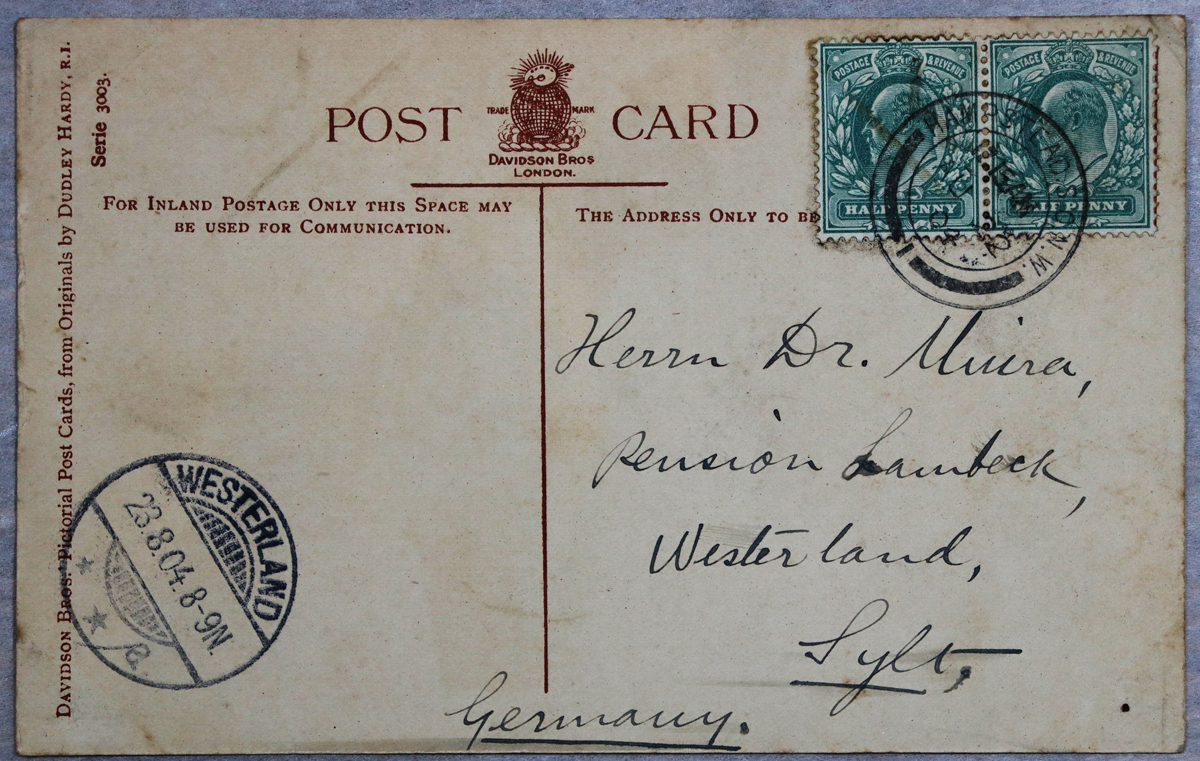 DAVIDSON BROS. Pictorial Post Cards, from Originals by DUDLEY HARDY, R.I.
Serie 3003.
POST CARD
TRADE MARK
DAVIDSON BROS
LONDON.
FOR INLAND POSTAGE ONLY THIS SPACE MAY
BE USED FOR COMMUNICATION.
THE ADDRESS ONLY TO BE
POSTAGE & REVENUE
HALFPENNY
POSTAGE & REVENUE
HALFPENNY
HAMPSTEAD S.O. N.W.
1
Herrn Dr. Muira,
Pension Lambeck,
Westerland,
Sylt,
Germany.
WESTERLAND
23.8.04.8-9N.